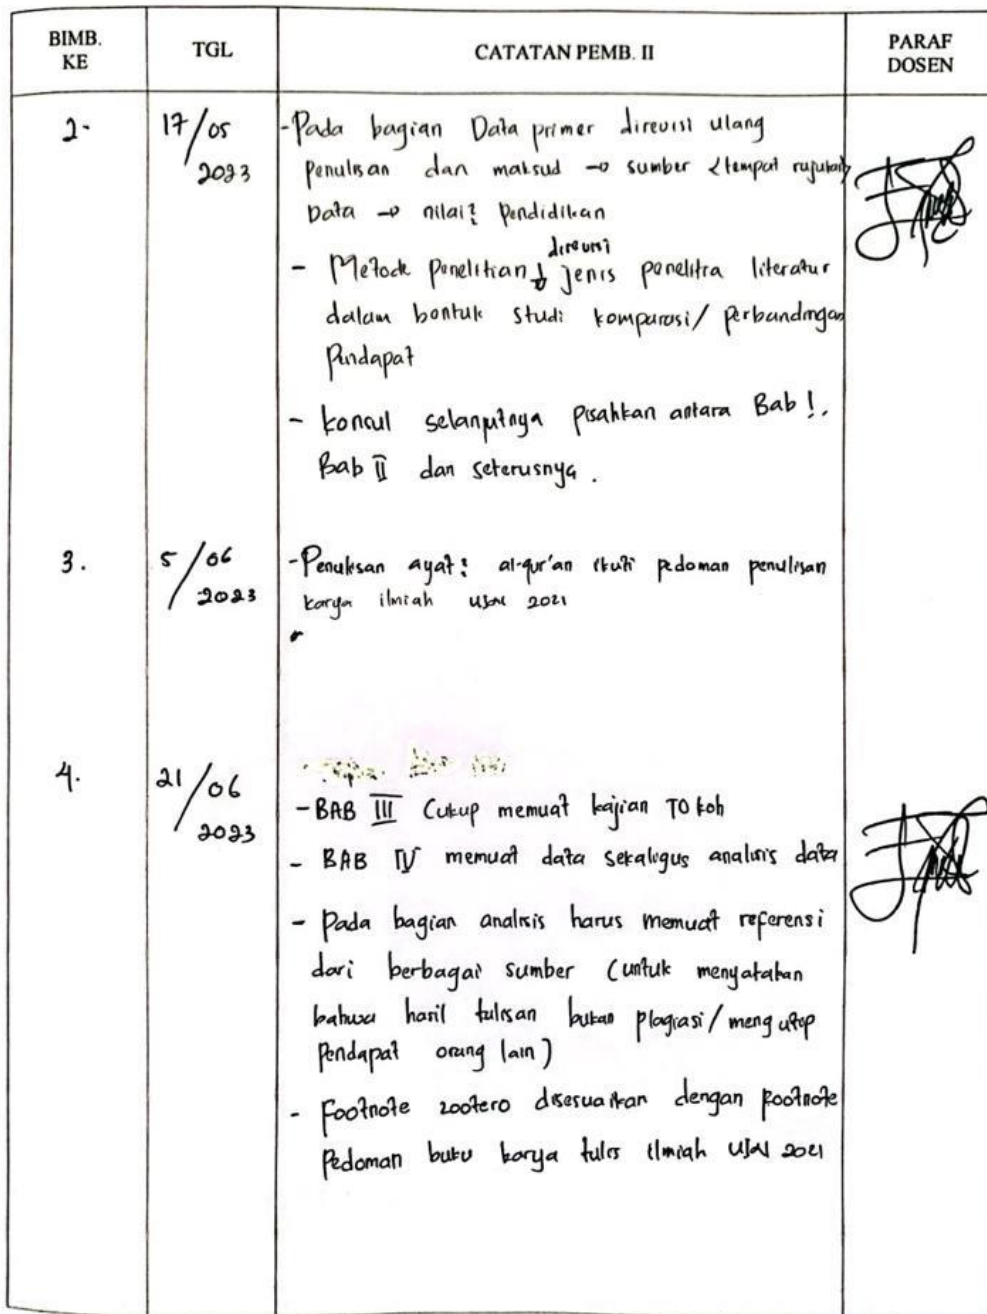 BIMB.
KE
TGL
CATATAN PEMB. II
PARAF
DOSEN
2-
17/05
2023
-Pada bagian Data primer direvisi ulang
penulisan dan maksud → sumber <tempat rujukan>
Data → nilai² Pendidikan
direvisi
- Metode penelitian ↓ jenis penelitia literatur
dalam bentuk studi komparasi/perbandingan
Pendapat
- konsul selanjutnya pisahkan antara Bab I.
Bab II dan seterusnya.
3.
5/06
2023
-Penulisan ayat² al-qur'an ikuti pedoman penulisan
karya ilmiah 2021
4.
21/06
2023
- BAB III Cukup memuat kajian Tokoh
- BAB IV memuat data sekaligus analisis data
- Pada bagian analisis harus memuat referensi
dari berbagai sumber (untuk menyatakan
bahwa hasil tulisan bukan plagiasi/mengutip
Pendapat orang lain)
- Footnote zootero disesuaikan dengan footnote
Pedoman buku karya tulis ilmiah 2021